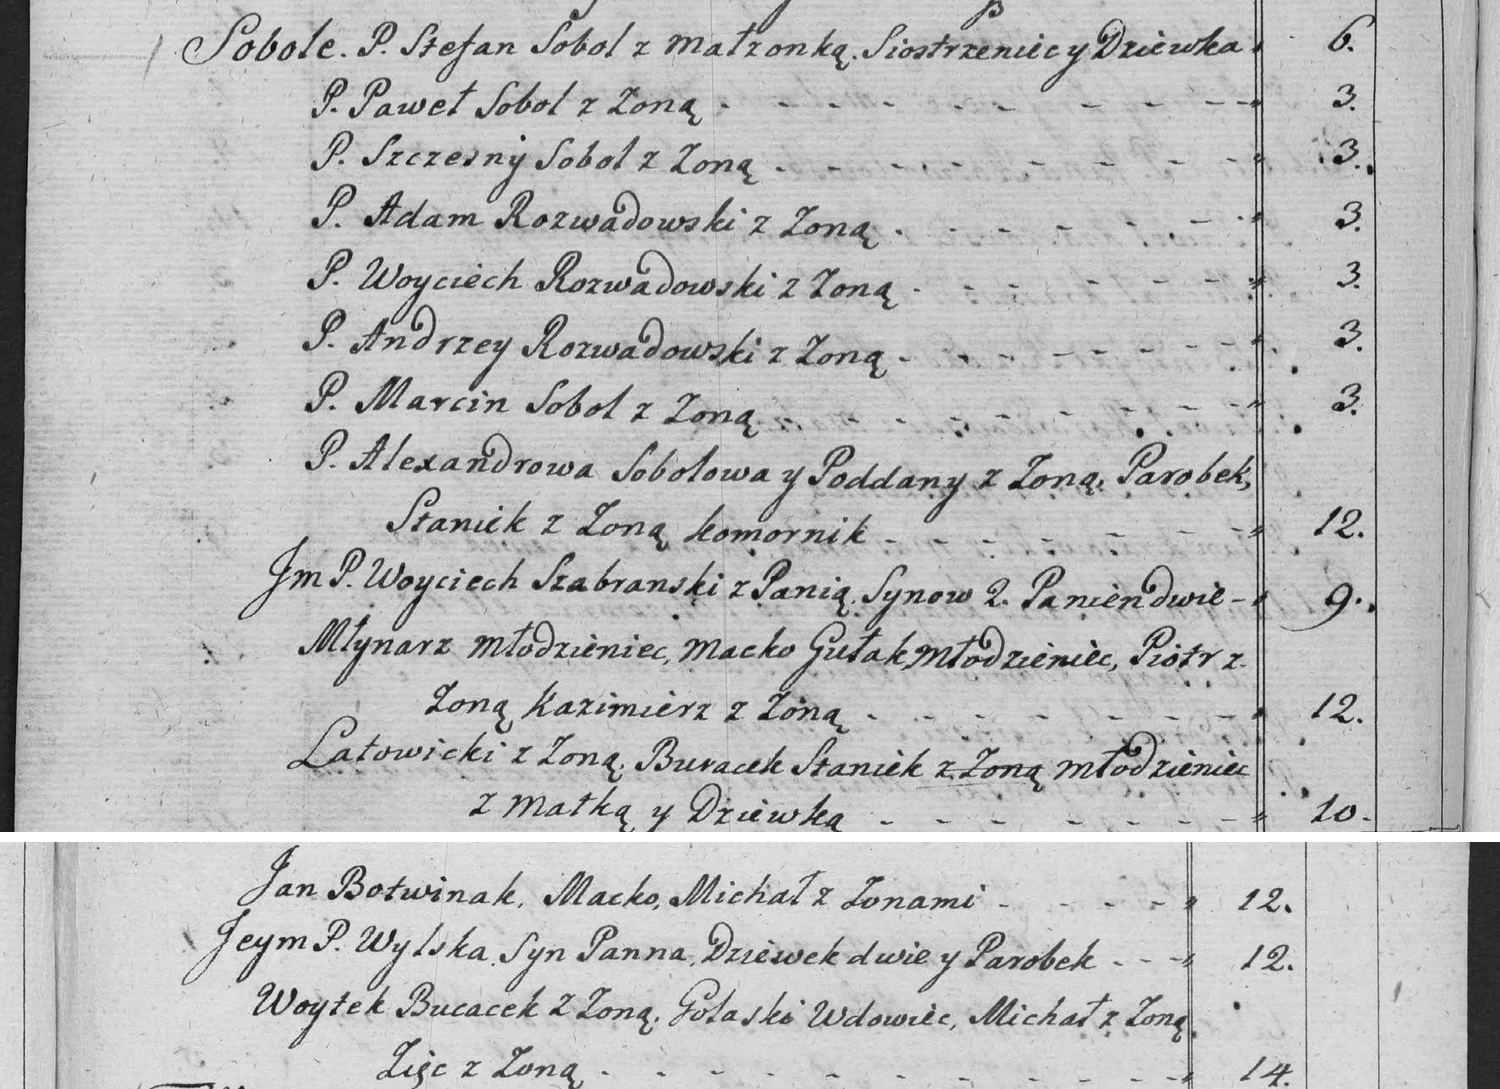 Sobole. P. Stefan Sobol z małzonką. Siostrzeniec y Dziewka 6.
P. Paweł Sobol z Zoną 3.
P. Szczesny Sobol z Zoną 3.
P. Adam Rozwadowski z Zoną 3.
P. Woyciech Rozwadowski z Zoną 3.
P. Andrzey Rozwadowski z Zoną 3.
P. Marcin Sobol z Zoną 3.
P. Alexandrowa Sobolowa y Poddany z Zoną, Parobek,
Staniek z Zoną komornik 12.
Jm P. Woyciech Szabranski z Panią. Synow 2. Panien dwie 9.
Młynarz młodzieniec, macko Gułak młodzieniec, Piotr z
Zoną Kazimierz z Zoną 12.
Latowicki z Zoną. Buracek Staniek z Zoną młodzieniec
z matką y Dziewka 10.
Jan Botwinak, Macko, Michał z Zonami 12.
Jeym P. Wylska, Syn Panna, Dziewek dwie y Parobek 12.
Woytek Bucacek z Zoną. Gołaski Wdowiec, Michał z Zoną
Zięc z Zoną 14.